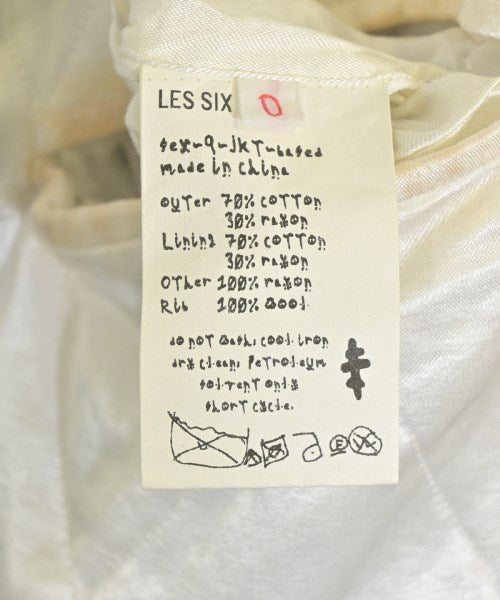 LES SIX 0
sex-9-jkT-based
made in china
outer 70% coTTon
30% rayon
Lining 70% coTTon
30% rayon
oTher 100% rayon
Rib 100% Wool
do noT Wash, cool iron
dry clean, PeTroleum
solvent only
short cycle.
E